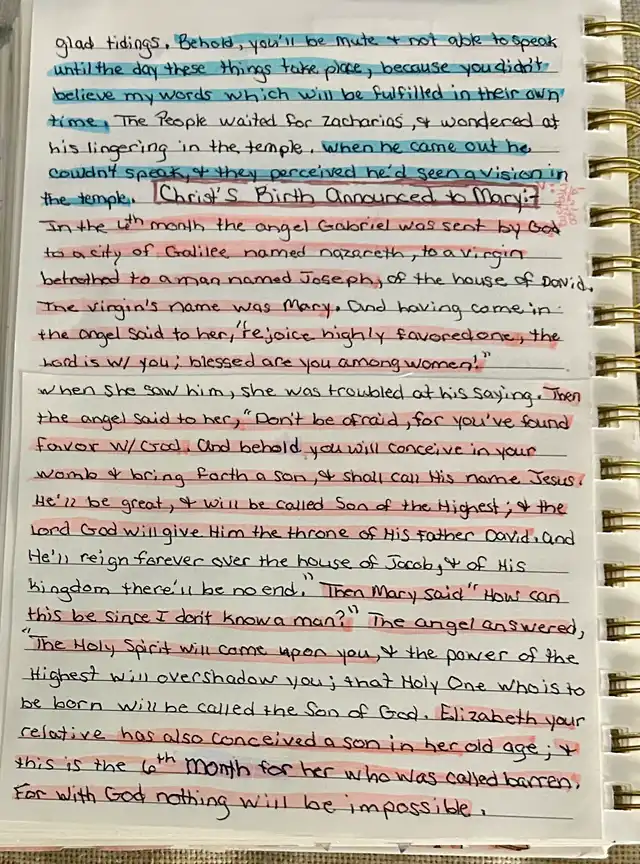 glad tidings. Behold, you'll be mute & not able to speak
until the day these things take place, because you didn't
believe my words which will be fulfilled in their own
time. The People waited for zacharias, & wondered at
his lingering in the temple. when he came out he
couldn't speak, & they perceived he'd seen a vision in
the temple. Christ's Birth Announced to Mary:
In the 6th month the angel Gabriel was sent by God
to a city of Galilee named nazareth, to a virgin
betrothed to a man named Joseph, of the house of David.
The virgin's name was Mary. And having come in
the angel said to her, "rejoice highly favored one, the
Lord is w/ you; blessed are you among women!"
when she saw him, she was troubled at his saying. Then
the angel said to her, "Don't be afraid, for you've found
favor w/ God. And behold you will conceive in your
womb & bring forth a son, & shall call His name Jesus.
He'll be great, & will be called Son of the Highest; & the
Lord God will give Him the throne of His Father David. And
He'll reign forever over the house of Jacob, & of His
kingdom there'll be no end." Then Mary said "How can
this be since I don't know a man?" The angel answered,
"The Holy Spirit will come upon you, & the power of the
Highest will overshadow you; that Holy One who is to
be born will be called the Son of God. Elizabeth your
relative has also conceived a son in her old age; &
this is the 6th month for her who was called barren.
For with God nothing will be impossible.